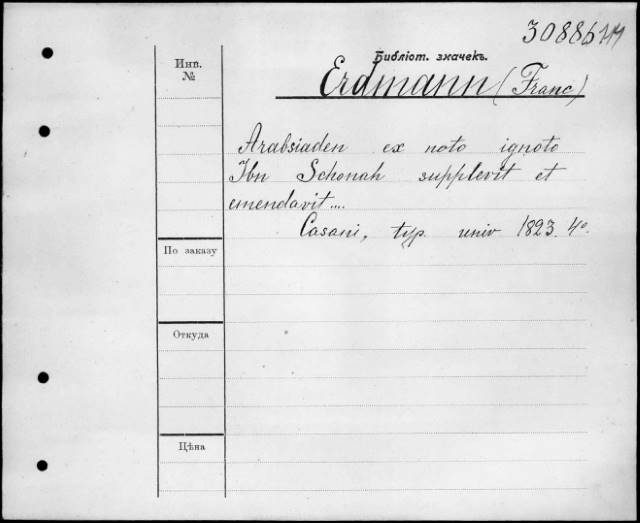 308867
Инв.
№
Библіот. значекъ.
Erdmann (Franc)
Arabsiaden ex noto ignoto
Ibn Schonah supplevit et
emendavit....
Casani, typ. univ 1823. 4°.
По заказу
Откуда
Цѣна